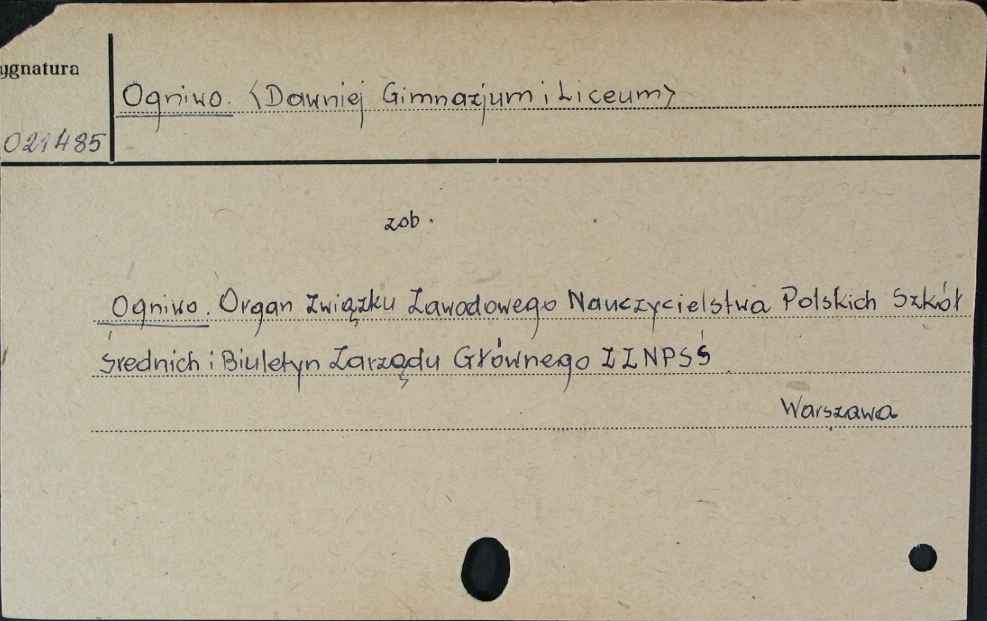 ygnatura
Ogniwo. <Dawniej Gimnazjum i Liceum>
021485
zob.
Ogniwo. Organ Związku Zawodowego Nauczycielstwa Polskich Szkół
Średnich i Biuletyn Zarządu Głównego ZZNPSŚ
Warszawa